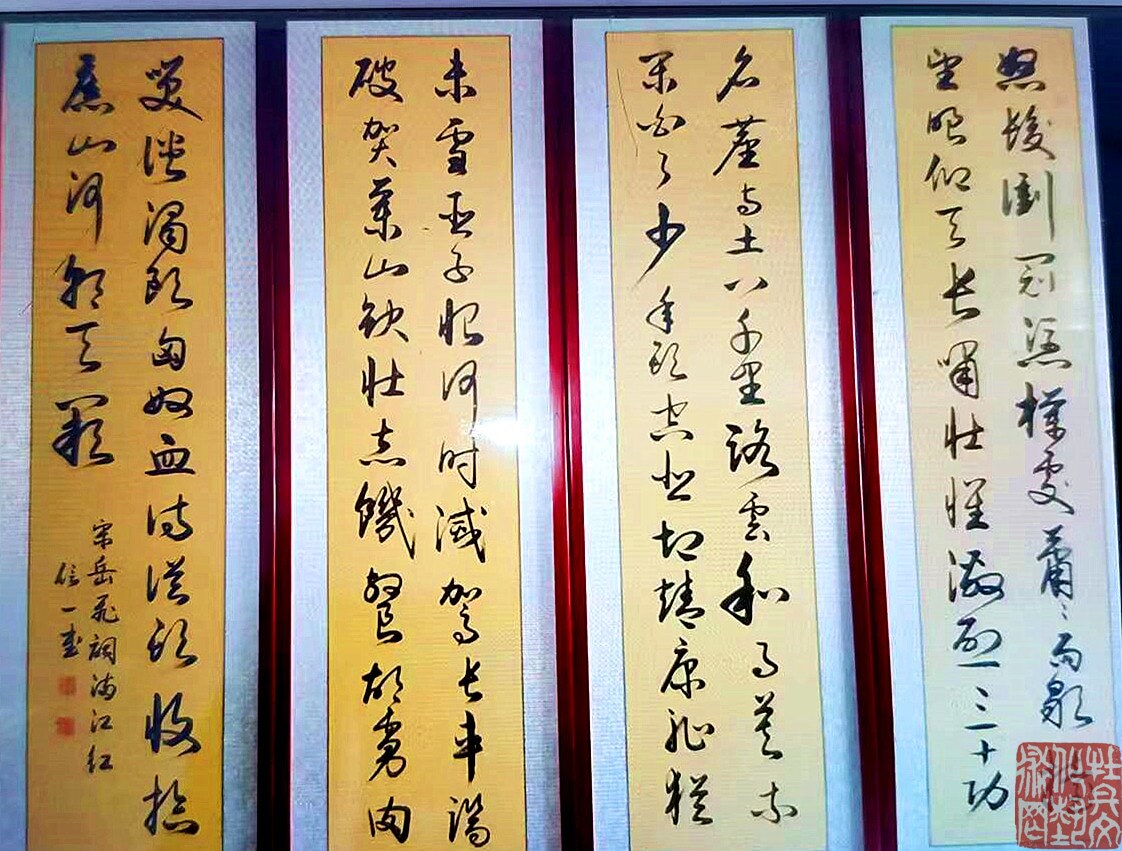 怒髮衝冠憑欄處蕭々雨歇
望眼仰天長嘯壯懷激烈三十功
名塵与土八千里路雲和月莫等
閒白了少年頭空悲切靖康恥猶
未雪臣子恨何時滅駕長車踏
破賀蘭山缺壯志饑餐胡虜肉
笑談渴飲匈奴血待從頭收拾
舊山河朝天闕
宋岳飛詞滿江红
信一書